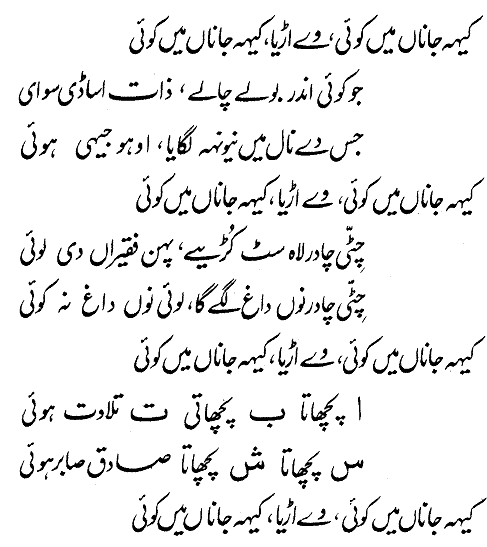 کیہہ جاناں میں کوئی، وے اڑیا، کیہہ جاناں میں کوئی
جو کوئی اندر بولے چالے، ذات اساڈی سوای
جس دے نال میں نیونہہ لگایا، اوہو جیہی ہوئی
کیہہ جاناں میں کوئی، وے اڑیا، کیہہ جاناں میں کوئی
چِٹّی چادر لاہ سٹ کُڑییے، پہن فقیراں دی لوئی
چِٹّی چادر نوں داغ لگے گا، لوئی نوں داغ نہ کوئی
کیہہ جاناں میں کوئی، وے اڑیا، کیہہ جاناں میں کوئی
ا پچھاتا ب پچھاتی ت تلاوت ہوئی
س پچھاتا ش پچھاتا صادق صابر ہوئی
کیہہ جاناں میں کوئی، وے اڑیا، کیہہ جاناں میں کوئی